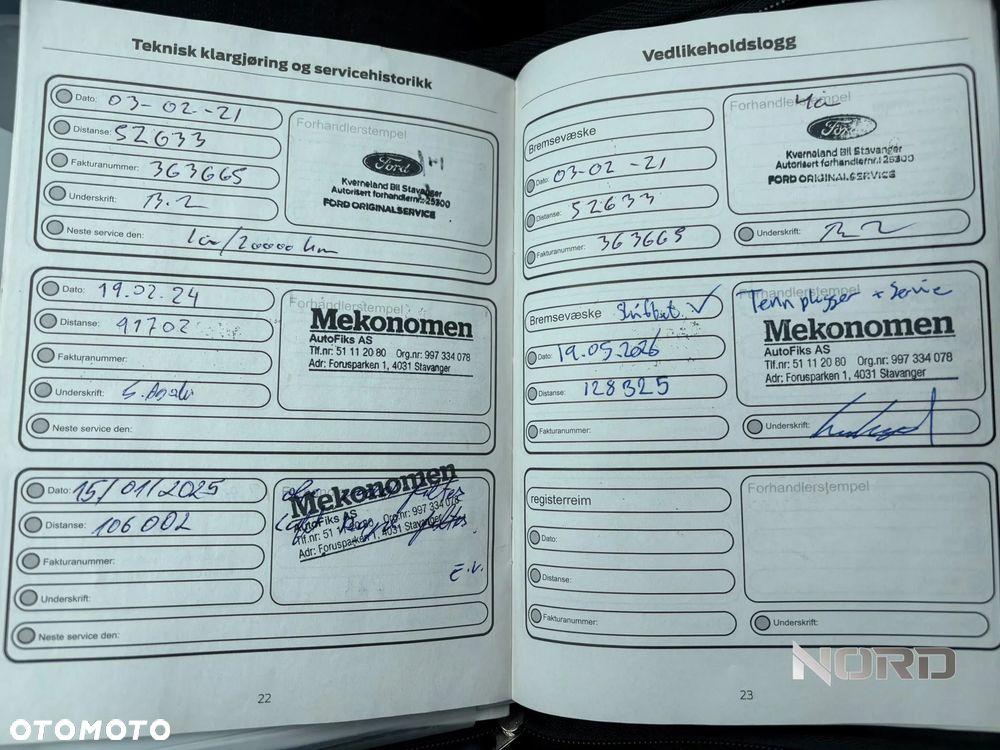 Teknisk klargjøring og servicehistorikk
Dato: 03-02-21
Distanse: 52633
Fakturanummer: 363665
Underskrift:
Neste service den: 1 år/20000 km
Forhandlerstempel
Ford
Kverneland Bil Stavanger
Autorisert forhandlernr.: 25300
FORD ORIGINALSERVICE
Dato: 19.02.24
Distanse: 91702
Fakturanummer:
Underskrift:
Neste service den:
Forhandlerstempel
Mekonomen
AutoFiks AS
Tlf.nr: 51 11 20 80 Org.nr: 997 334 078
Adr: Forusparken 1, 4031 Stavanger
Dato: 15/01/2025
Distanse: 106002
Fakturanummer:
Underskrift:
Neste service den:
Mekonomen
AutoFiks AS
Tlf.nr: 51 11 20 80 Org.nr: 997 334 078
Adr: Forusparken 1, 4031 Stavanger
E.V.
22
Vedlikeholdslogg
Bremsevæske
Dato: 03-02-21
Distanse: 52633
Fakturanummer: 363665
Forhandlerstempel
4 år
Ford
Kverneland Bil Stavanger
Autorisert forhandlernr.: 25300
FORD ORIGINALSERVICE
Underskrift:
Bremsevæske
Dato: 19.05.2026
Distanse: 128325
Fakturanummer:
Forhandlerstempel
Tennplugger + Service
Mekonomen
AutoFiks AS
Tlf.nr: 51 11 20 80 Org.nr: 997 334 078
Adr: Forusparken 1, 4031 Stavanger
Underskrift:
registerreim
Dato:
Distanse:
Fakturanummer:
Forhandlerstempel
Underskrift:
23
NORD
OTOMOTO